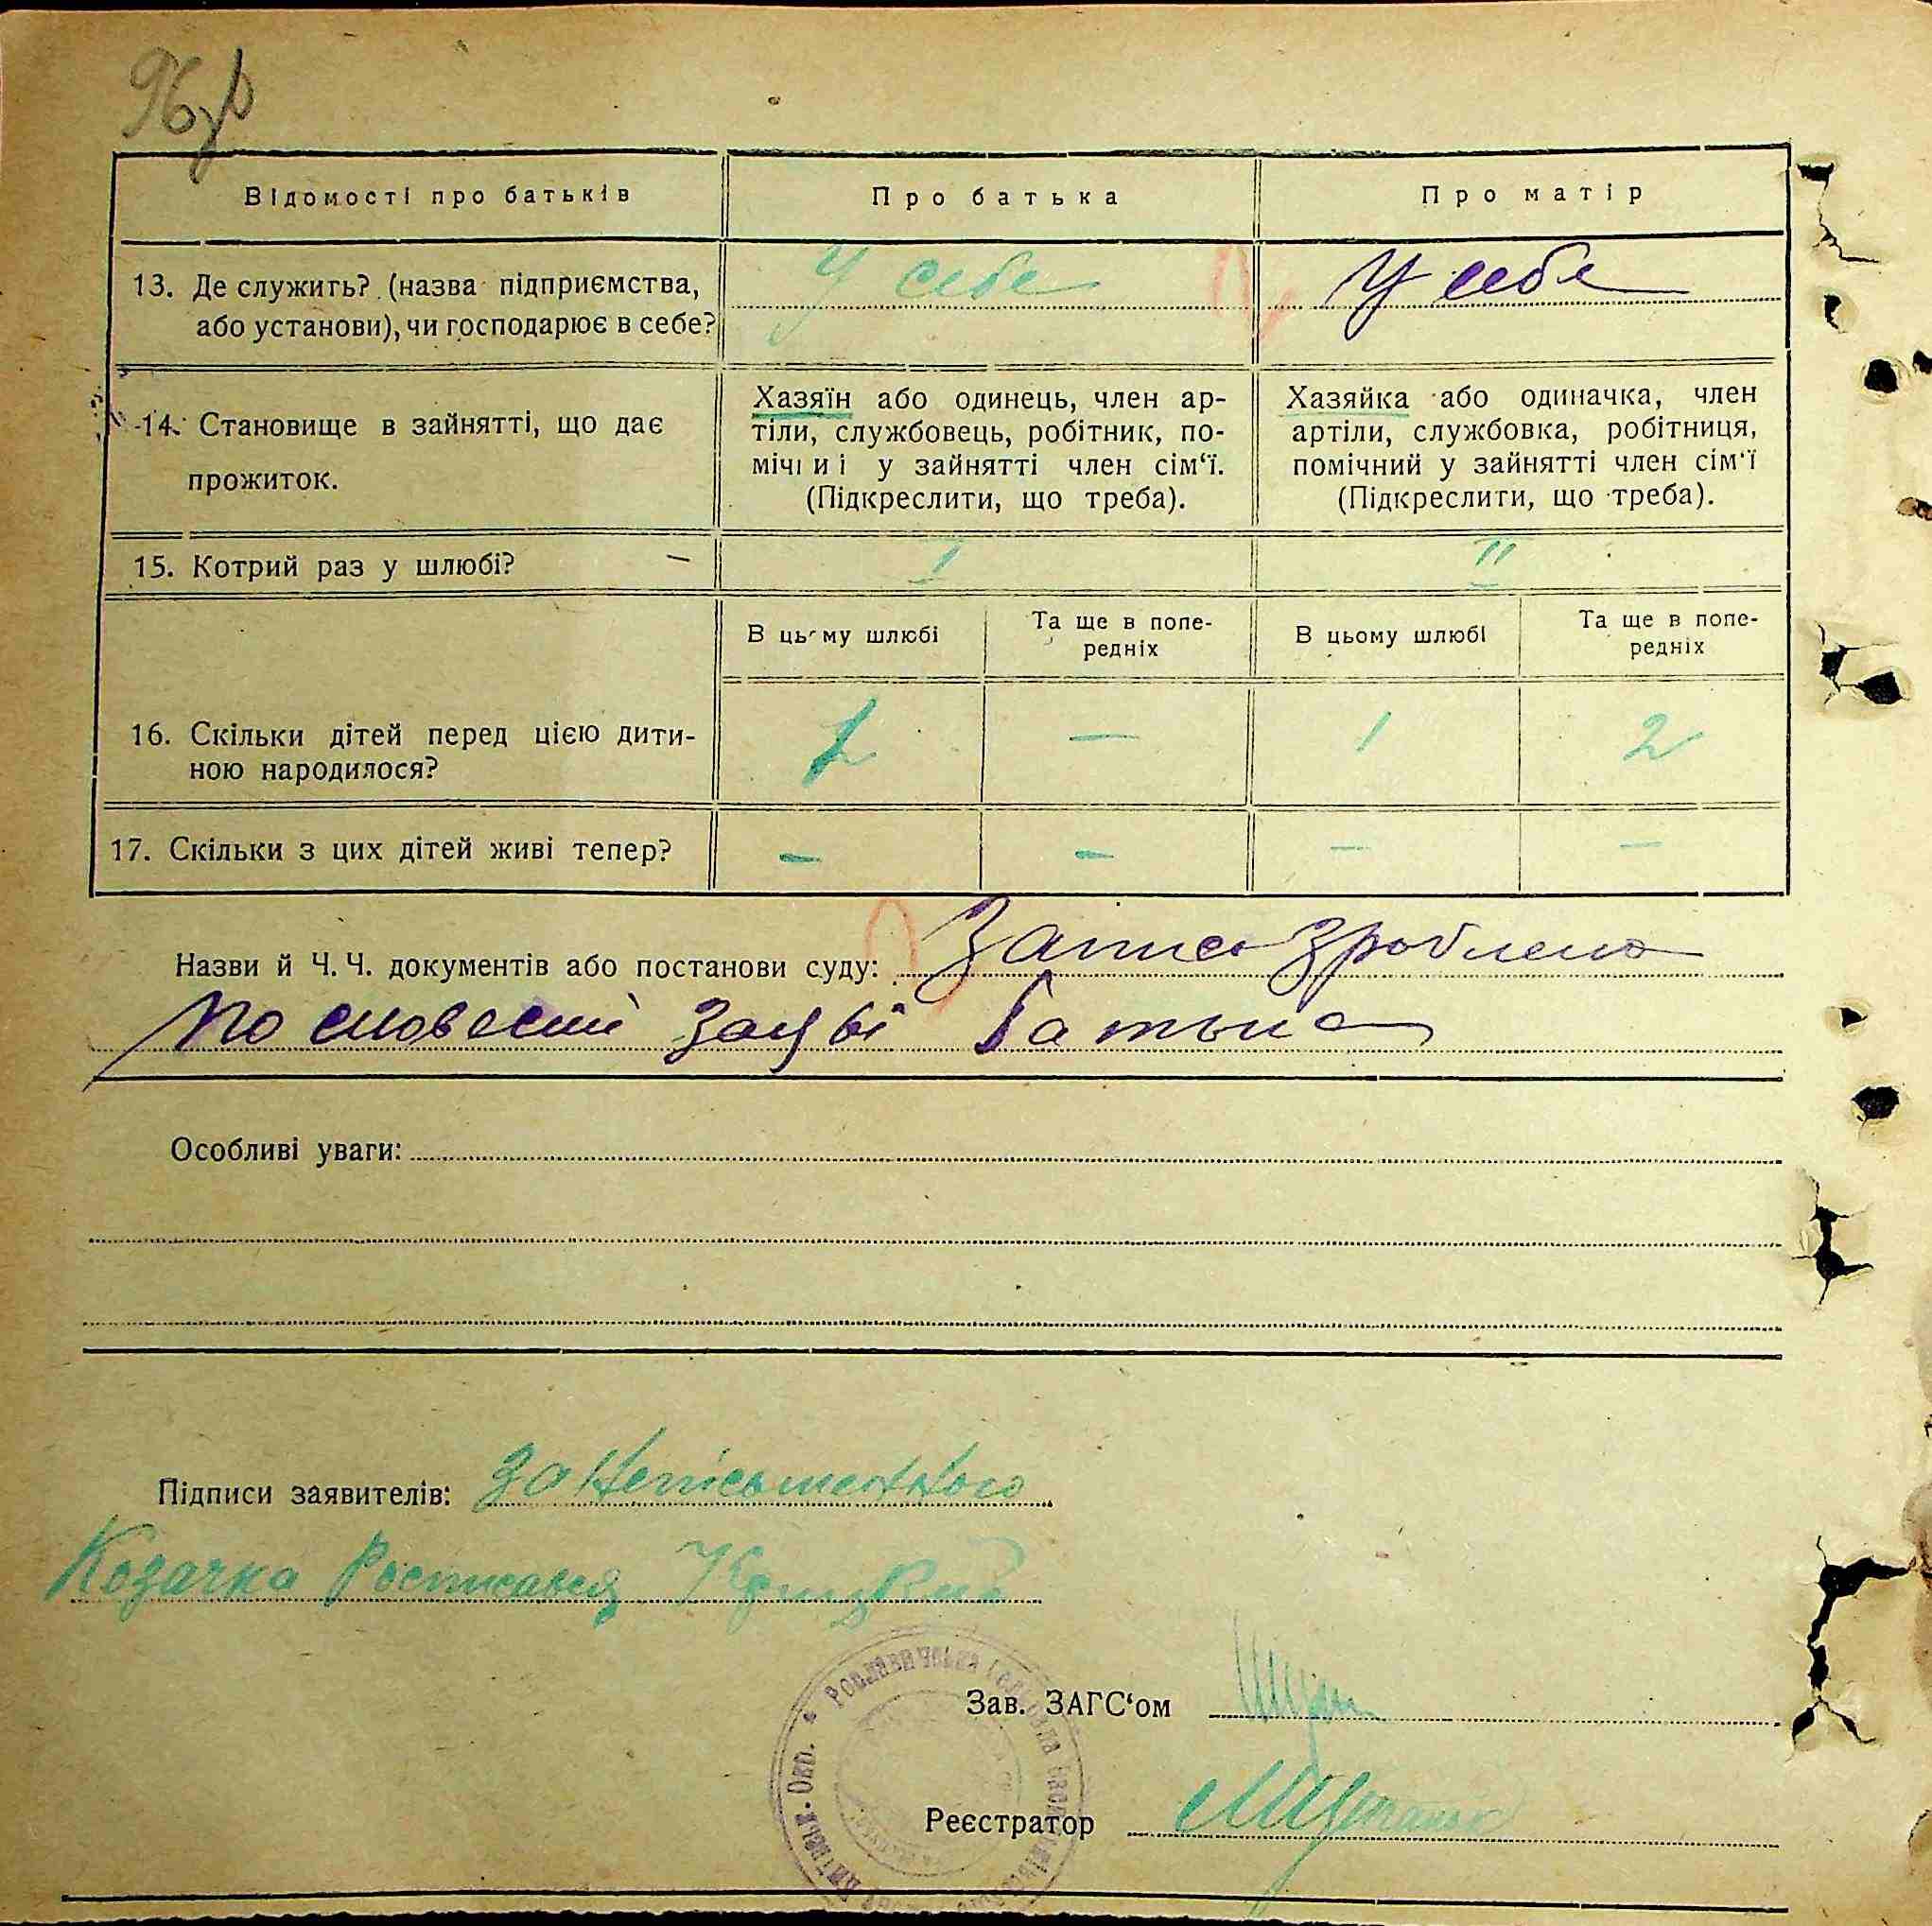 Відомості про батьків
Про батька
Про матір
13. Де служить? (назва підприємства, або установи), чи господарює в себе?
У себе
У себе
14. Становище в зайнятті, що дає
прожиток.
Хазяїн або одинець, член ар-
тіли, службовець, робітник, по-
мічниі у зайнятті член сім‘ї.
(Підкреслити, що треба).
Хазяйка або одиначка, член
артіли, службовка, робітниця,
помічний у зайнятті член сім‘ї
(Підкреслити, що треба).
15. Котрий раз у шлюбі? –
I
II
В цьому шлюбі
Та ще в попе-
редніх
В цьому шлюбі
Та ще в попе-
редніх
16. Скільки дітей перед цією дити-
ною народилося?
1
—
1
2
17. Скільки з цих дітей живі тепер?
–
–
–
–
Назви й Ч. Ч. документів або постанови суду: Запись зроблено
по словесній заяві батька
Особливі уваги:
Підписи заявителів: за неписьменного
Козачка Росписався
РОСЛАВИЧСЬКА
Зав. ЗАГС‘ом
Реєстратор